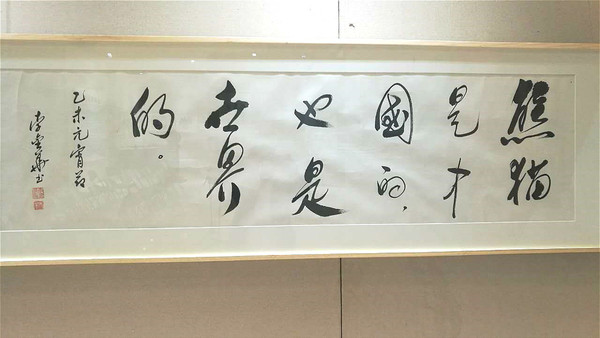 熊猫
是中
國的，
也是
世界
的。
乙未元宵节
李金华书